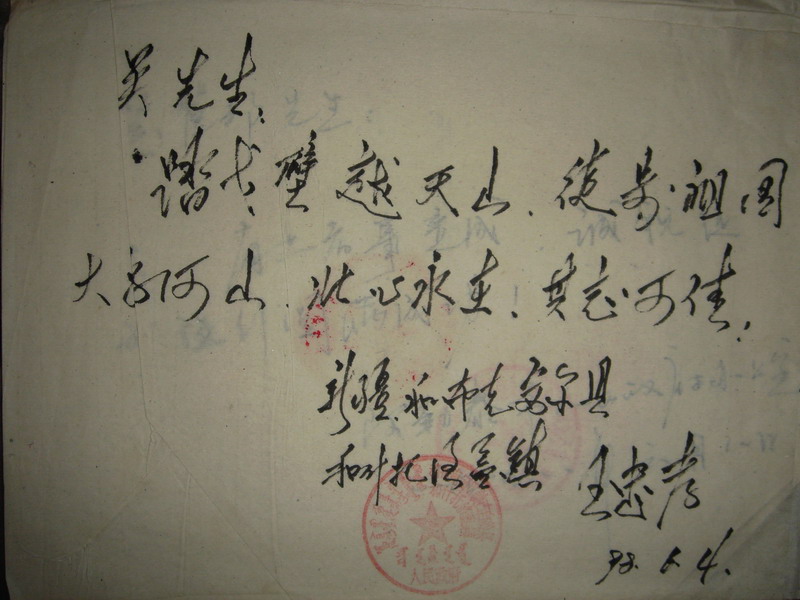 吴先生:
踏戈壁越天山、徒步祖国
大好河山、壮心永在、其志可佳.
新疆和布克赛尔县
和什托洛盖镇 王忠孝
98.6.4.
人民政府